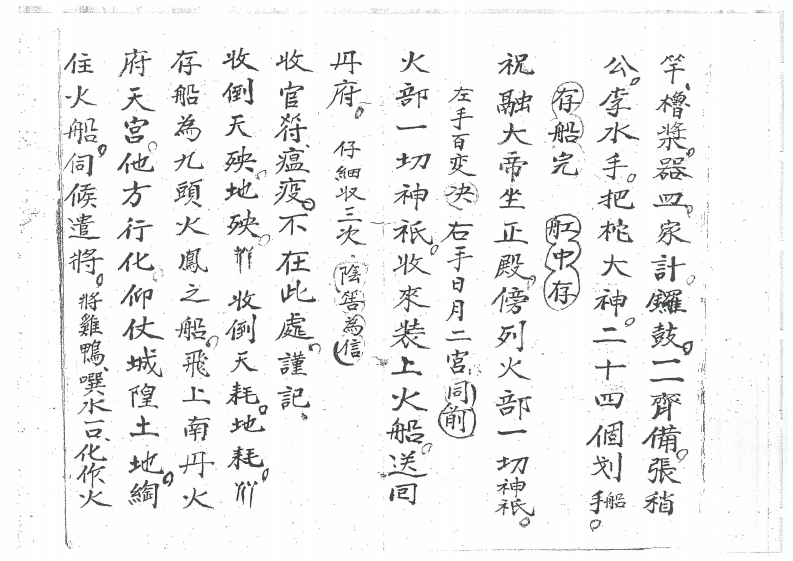 竿、櫓槳。器皿。家計。鑼鼓。二齊備。張稍
公。李水手。把柁大神。二十四個划船手。
存船完 舡中存
祝融大帝坐正殿。傍列火部一切神祇。
左手百变决 右手日月二宮同前
火部一切神祇。收來裝上火船。送回
丹府。 仔細收三次、陰筶為信
收官符、瘟疫。不在此處。謹記、
收倒天殃。地殃。 收倒天耗。地耗。
存船為九頭火鳳之船。飛上南丹火
府天宮。他方行化。仰仗城隍土地。綯
住火船。伺候遣將。將雞鴨、噀水一口、化作火